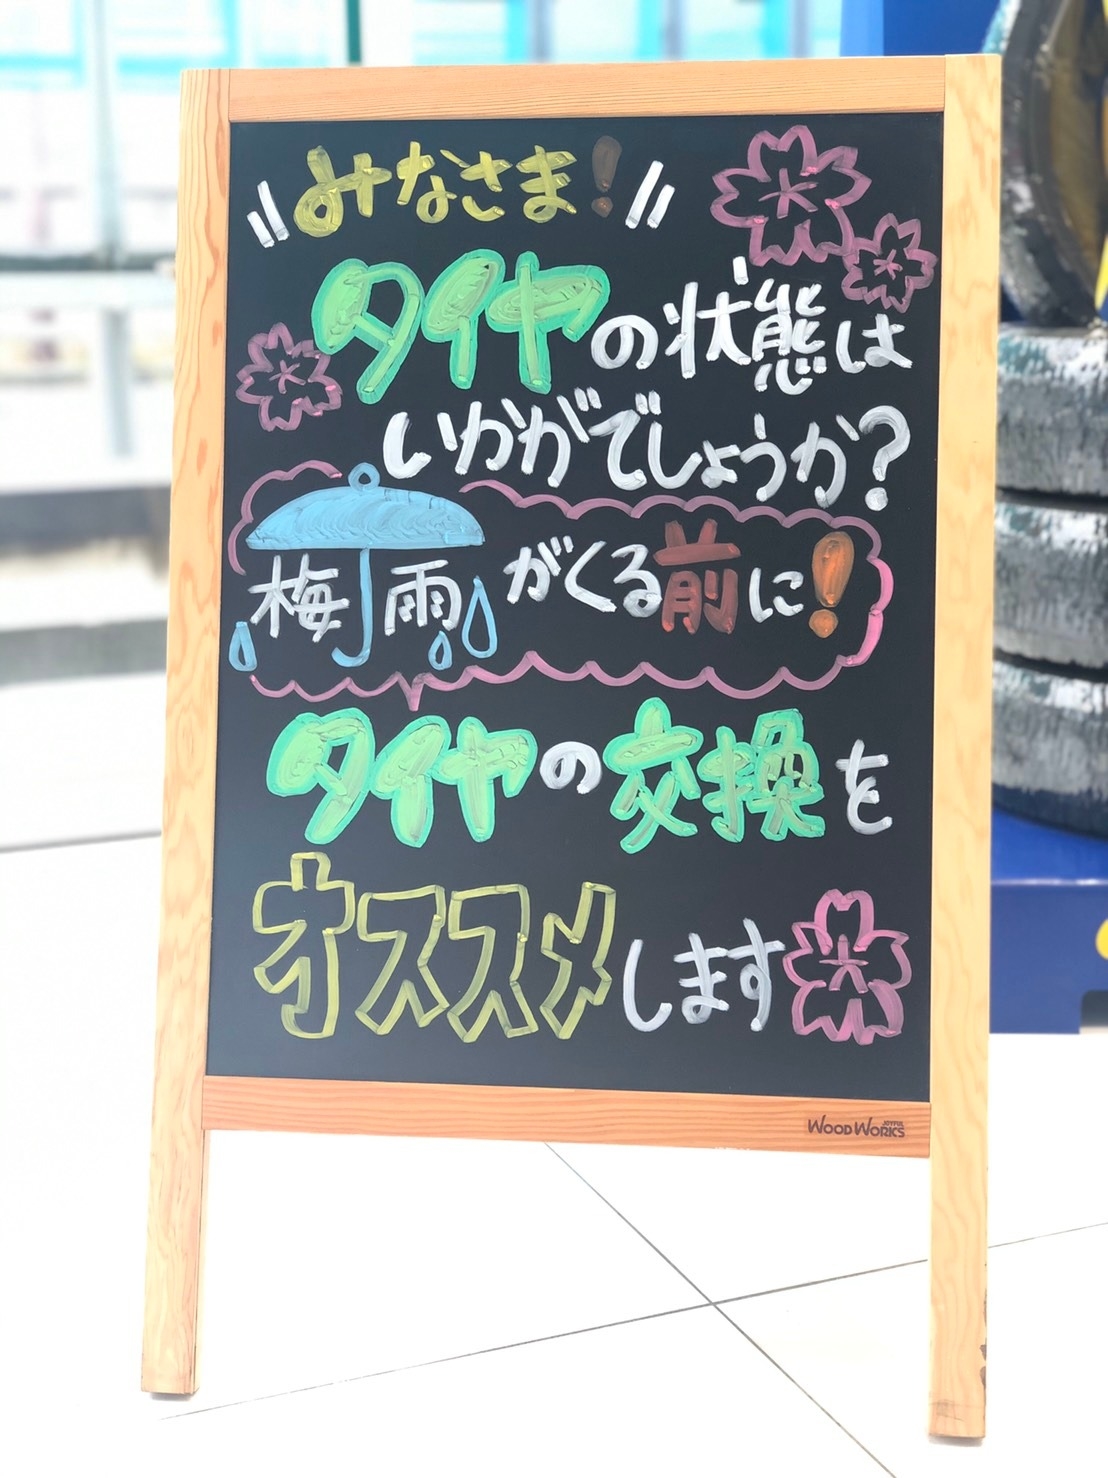 〃みなさま!〃
タイヤの状態は
いかがでしょうか?
梅雨がくる前に!
タイヤの交換を
オススメします
WOOD WORKS JOYFUL